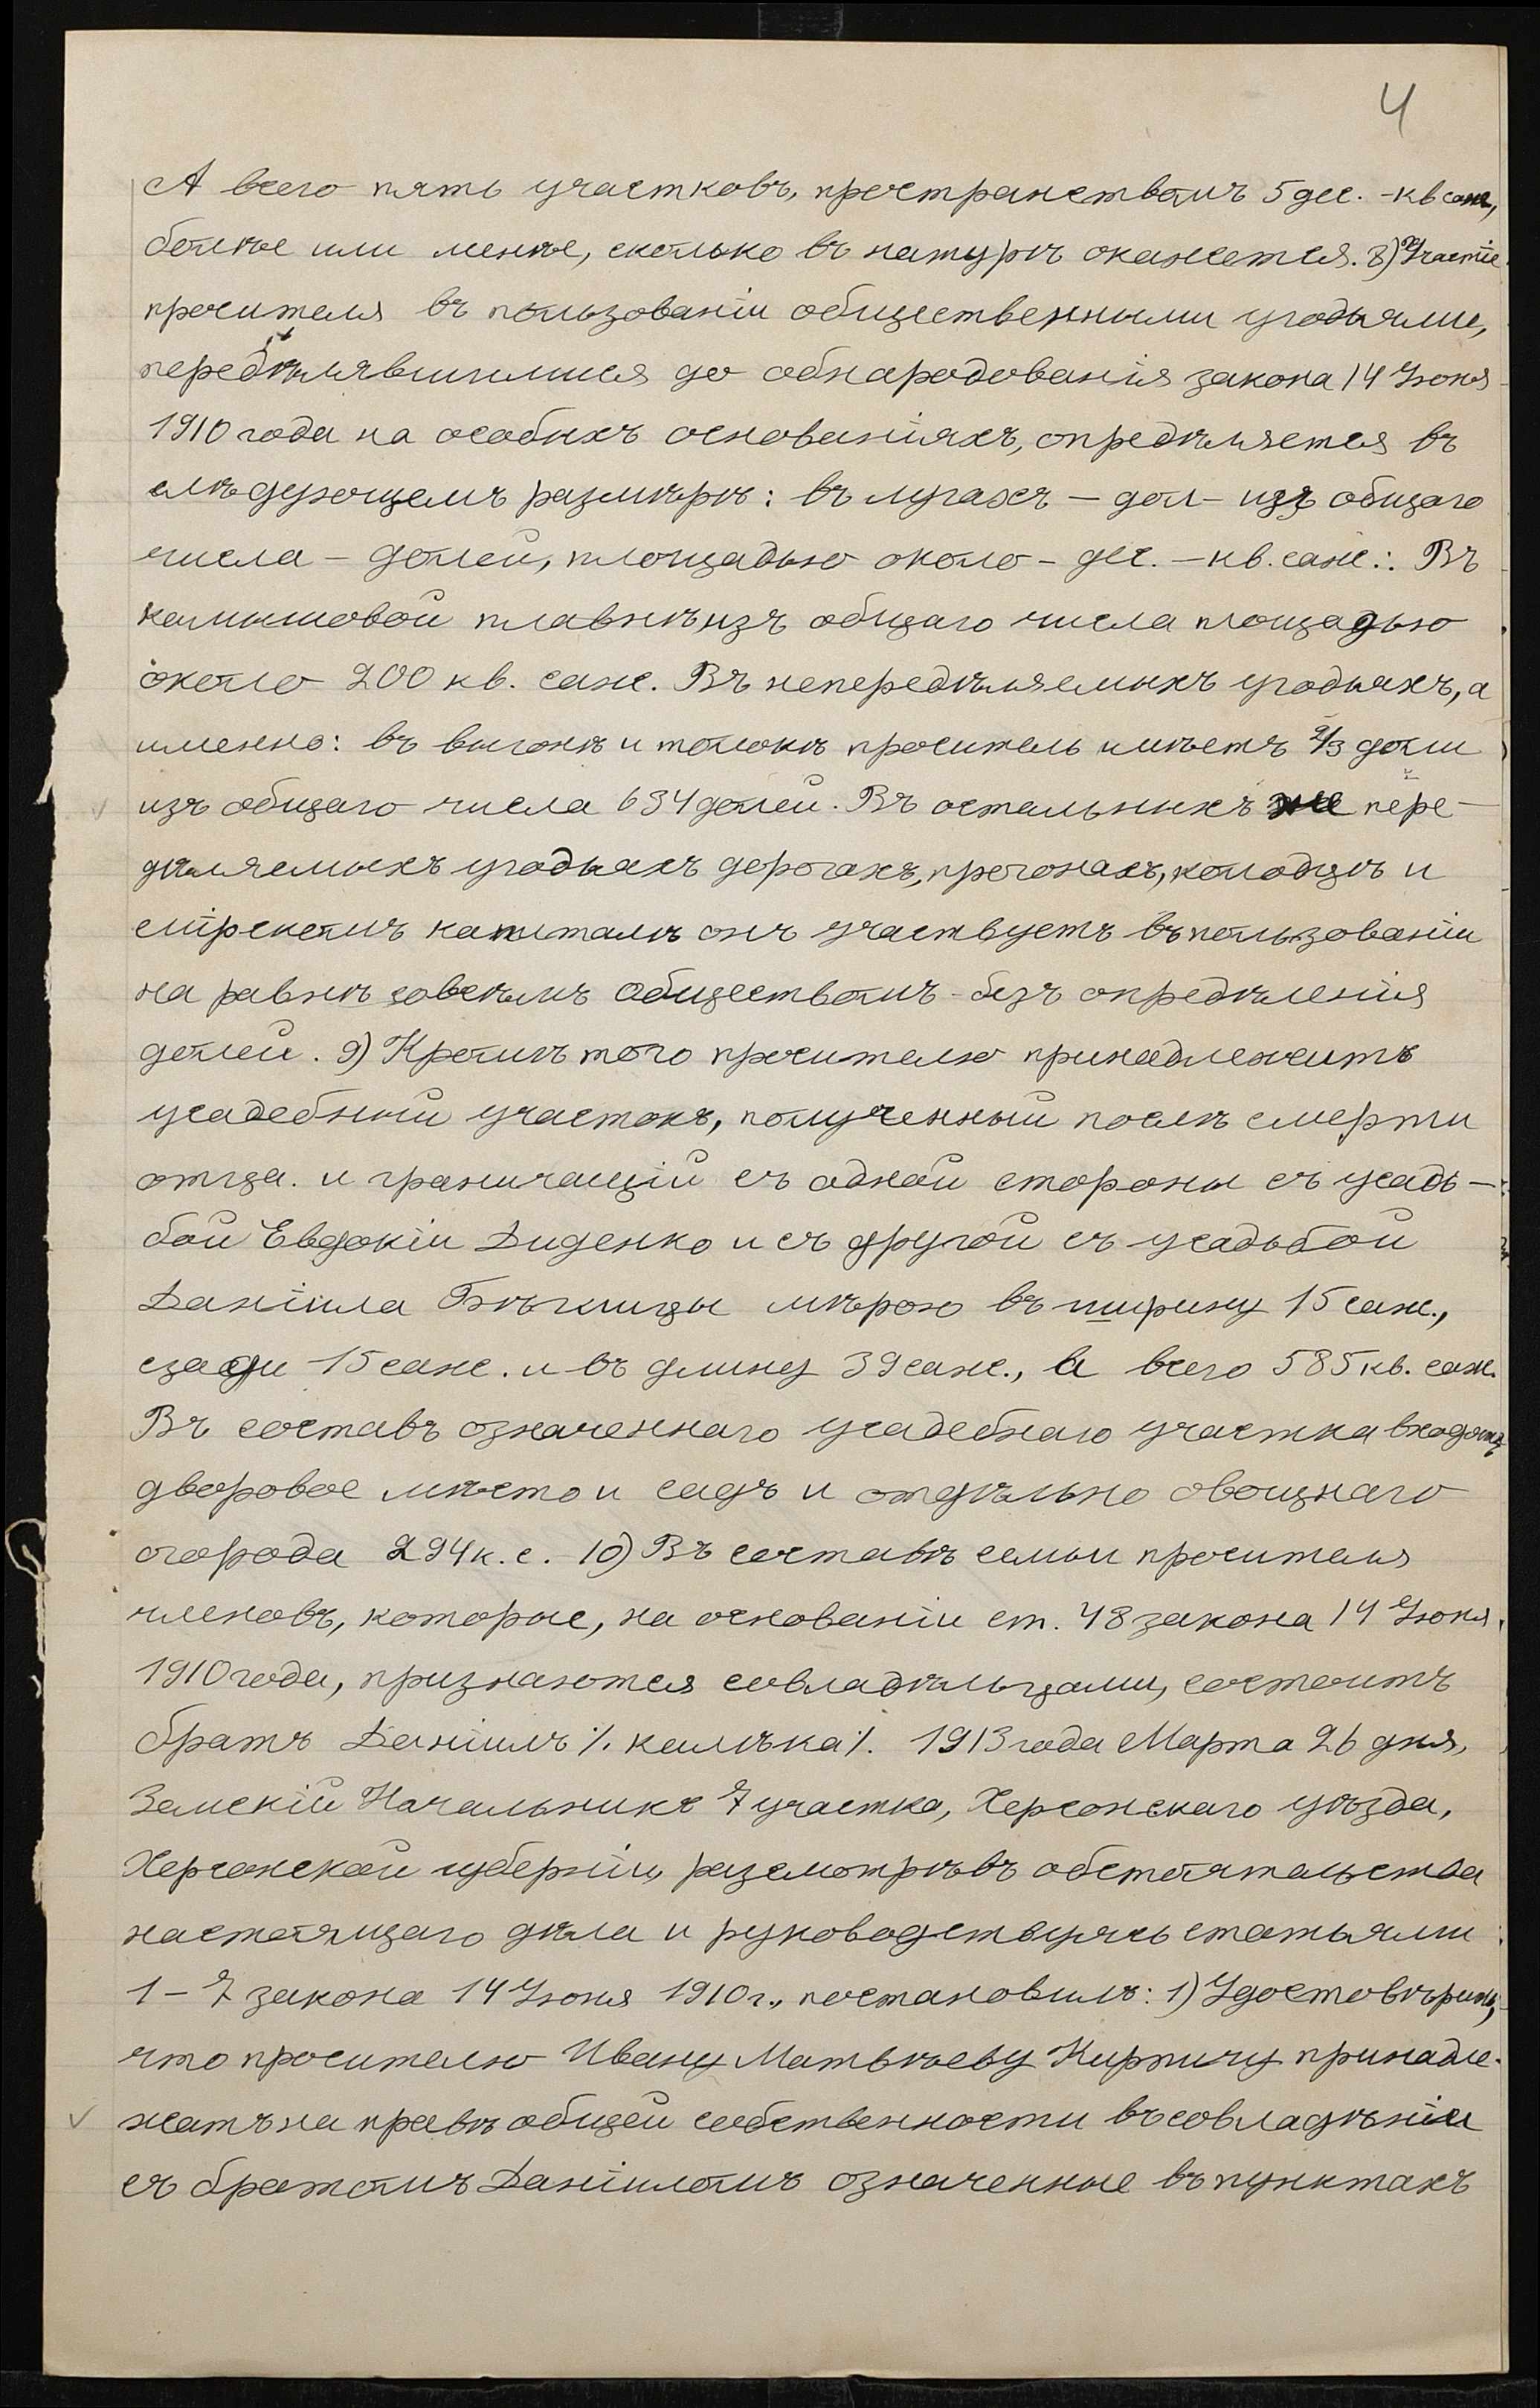 4
А всего пять участковъ, пространствомъ 5 дес. - кв саж,
болѣе или менѣе, сколько въ натурѣ окажется. 8) Участіе
просителя въ пользованіи общественными угодьями,
передѣлявшимися до обнародованія закона 14 Іюня
1910 года на особыхъ основаніяхъ, опредѣляется въ
слѣдующемъ размѣрѣ: въ лугахъ - дол - изъ общаго
числа - долей, площадью около - дес. - кв. саж.: Въ
камышовой плавнѣ изъ общаго числа площадью
около 200 кв. саж. Въ непередѣляемыхъ угодьяхъ, а
именно: въ выгонѣ и толокѣ проситель имѣетъ 2/3 доли
изъ общаго числа 634 долей. Въ остальныхъ же пере-
дѣляемыхъ угодьяхъ дорогахъ, прогонахъ, колодцѣ и
мірскомъ капиталѣ онъ участвуетъ въ пользованіи
на равнѣ со всѣмъ обществомъ - безъ опредѣленія
долей. 9) Кромѣ того просителю принадлежитъ
усадебный участокъ, полученный послѣ смерти
отца. и граничащій съ одной стороны съ усадь-
бой Евдокіи Диденко и съ другой съ усадьбой
Даніила мѣрою въ ширину 15 саж.,
сзади 15 саж. и въ длину 39 саж., а всего 585 кв. саж.
Въ составъ означеннаго усадебнаго участка входятъ
дворовое мѣсто и садъ и отдѣльно овощнаго
огорода 294 к. с. 10) Въ составѣ семьи просителя
членовъ, которые, на основаніи ст. 48 закона 14 Іюня
1910 года, признаются совладѣльцами, состоитъ
братъ Даніилъ /. калѣка /. 1913 года Марта 26 дня,
Земскій Начальникъ 7 участка, Херсонскаго уѣзда,
Херсонской губерніи, разсмотрѣвъ обстоятельства
настоящаго дѣла и руководствуясь статьями
1 - 7 закона 14 Іюня 1910 г., постановилъ: 1) Удостовѣрить,
что просителю Ивану Матвѣеву Кирпичу принадле-
жатъ на правѣ общей собственности въ совладѣніи
съ братомъ Даніиломъ означенные въ пунктахъ